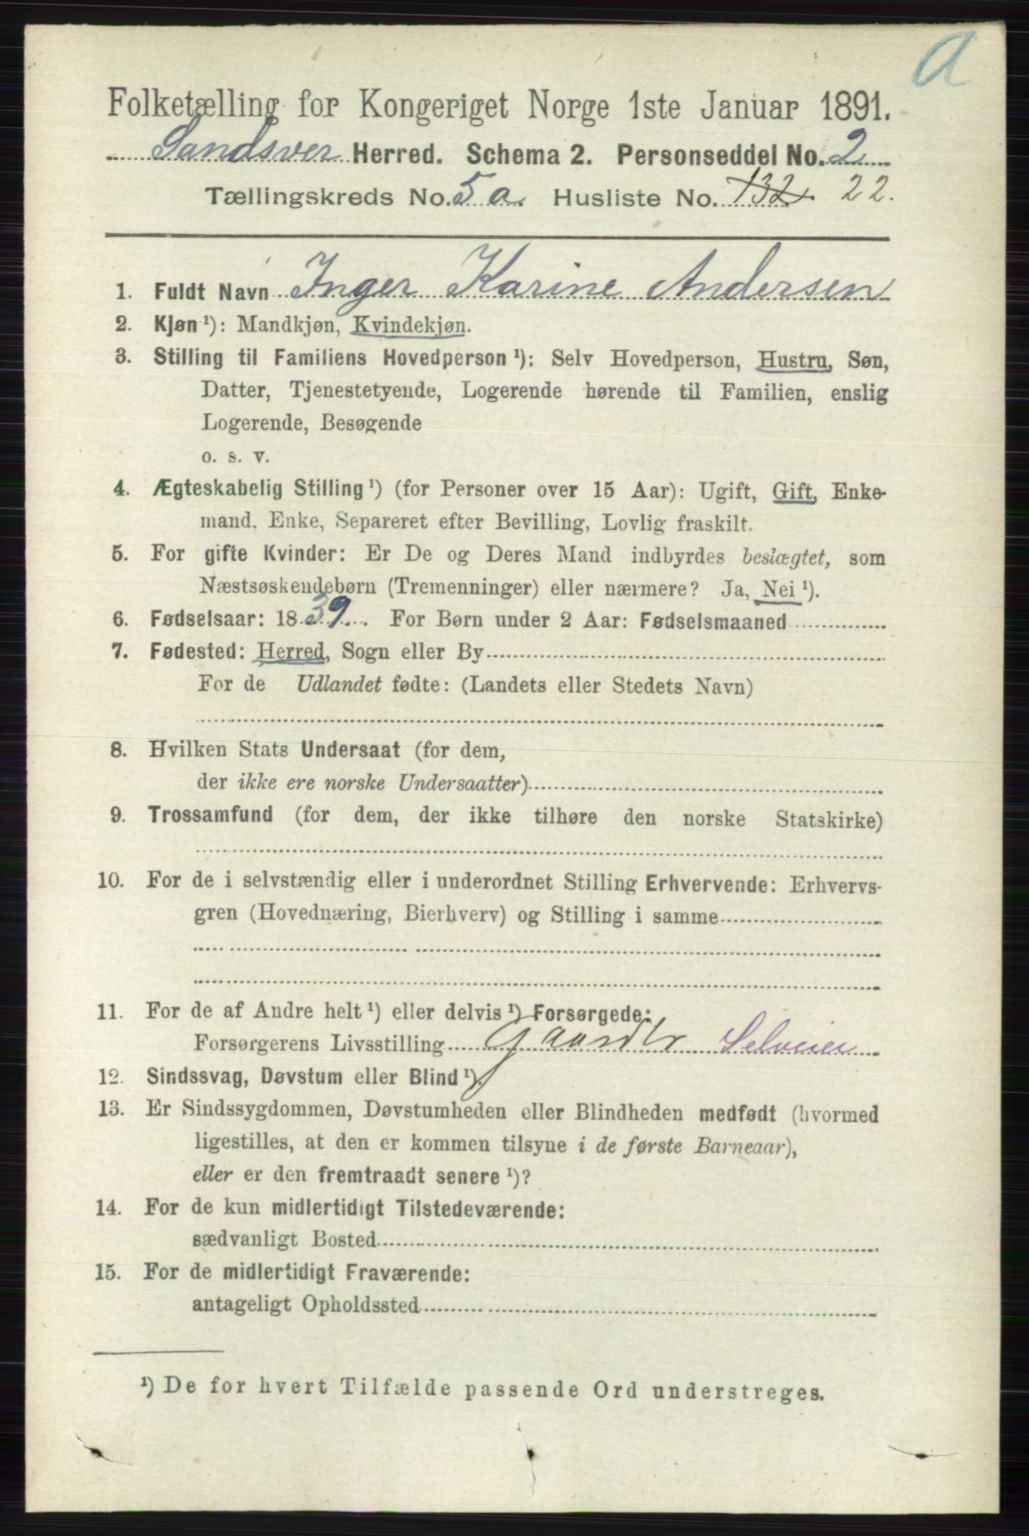 a
Folketælling for Kongeriget Norge 1ste Januar 1891.
Sandsver Herred. Schema 2. Personseddel No. 2
Tællingskreds No. 5 a. Husliste No. 132 22.
1. Fuldt Navn Inger Karine Andersen
2. Kjøn¹): Mandkjøn, Kvindekjøn.
3. Stilling til Familiens Hovedperson¹): Selv Hovedperson, Hustru, Søn,
Datter, Tjenestetyende, Logerende hørende til Familien, enslig
Logerende, Besøgende
o. s. v.
4. Ægteskabelig Stilling¹) (for Personer over 15 Aar): Ugift, Gift, Enke-
mand, Enke, Separeret efter Bevilling, Lovlig fraskilt.
5. For gifte Kvinder: Er De og Deres Mand indbyrdes beslægtet, som
Næstsøskendebørn (Tremenninger) eller nærmere? Ja, Nei¹).
6. Fødselsaar: 1839. For Børn under 2 Aar: Fødselsmaaned
7. Fødested: Herred, Sogn eller By
For de Udlandet fødte: (Landets eller Stedets Navn)
8. Hvilken Stats Undersaat (for dem,
der ikke ere norske Undersaatter)
9. Trossamfund (for dem, der ikke tilhøre den norske Statskirke)
10. For de i selvstændig eller i underordnet Stilling Erhvervende: Erhvervs-
gren (Hovednæring, Bierhverv) og Stilling i samme
11. For de af Andre helt¹) eller delvis¹) Forsørgede:
Forsørgerens Livsstilling Gaardbr Selveier
12. Sindssvag, Døvstum eller Blind¹).
13. Er Sindssygdommen, Døvstumheden eller Blindheden medfødt (hvormed
ligestilles, at den er kommen tilsyne i de første Barneaar),
eller er den fremtraadt senere¹)?
14. For de kun midlertidigt Tilstedeværende:
sædvanligt Bosted
15. For de midlertidigt Fraværende:
antageligt Opholdssted
¹) De for hvert Tilfælde passende Ord understreges.